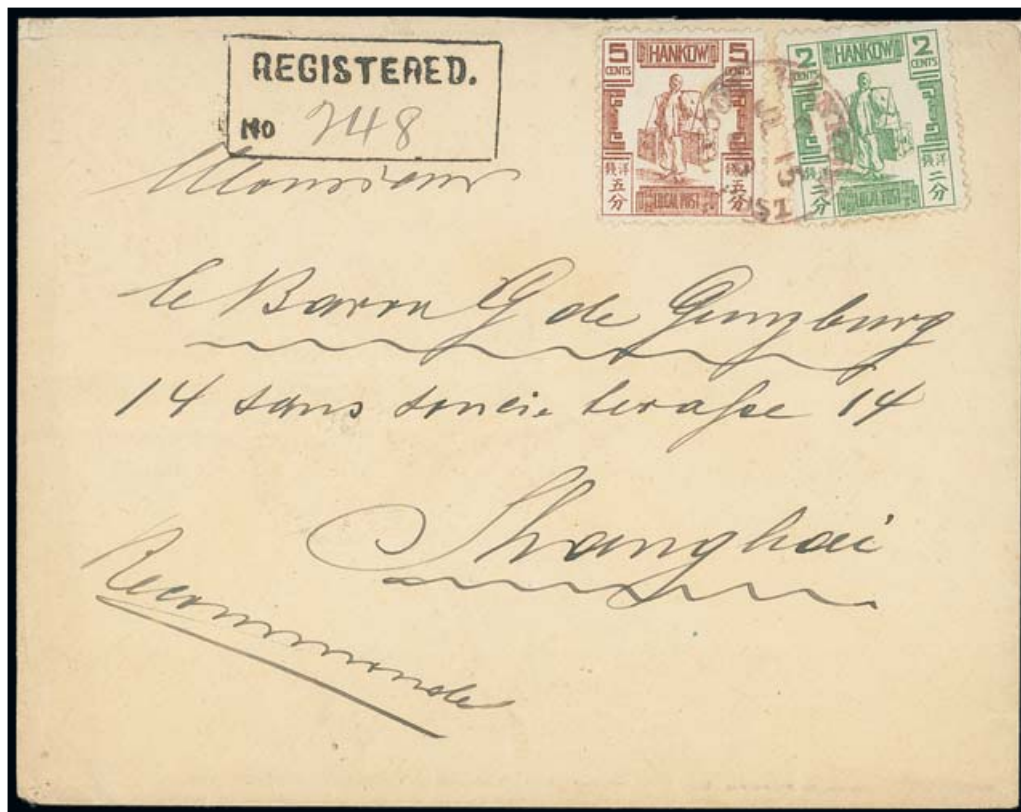 REGISTERED.
No 248
5 CENTS HANKOW 5 CENTS
洋銀五分 五分
LOCAL POST
2 CENTS HANKOW 2 CENTS
洋銀二分 二分
LOCAL POST
Monsieur
le Baron G de Gunzburg
14 sans soucie terasse 14
Shanghai
Recommande